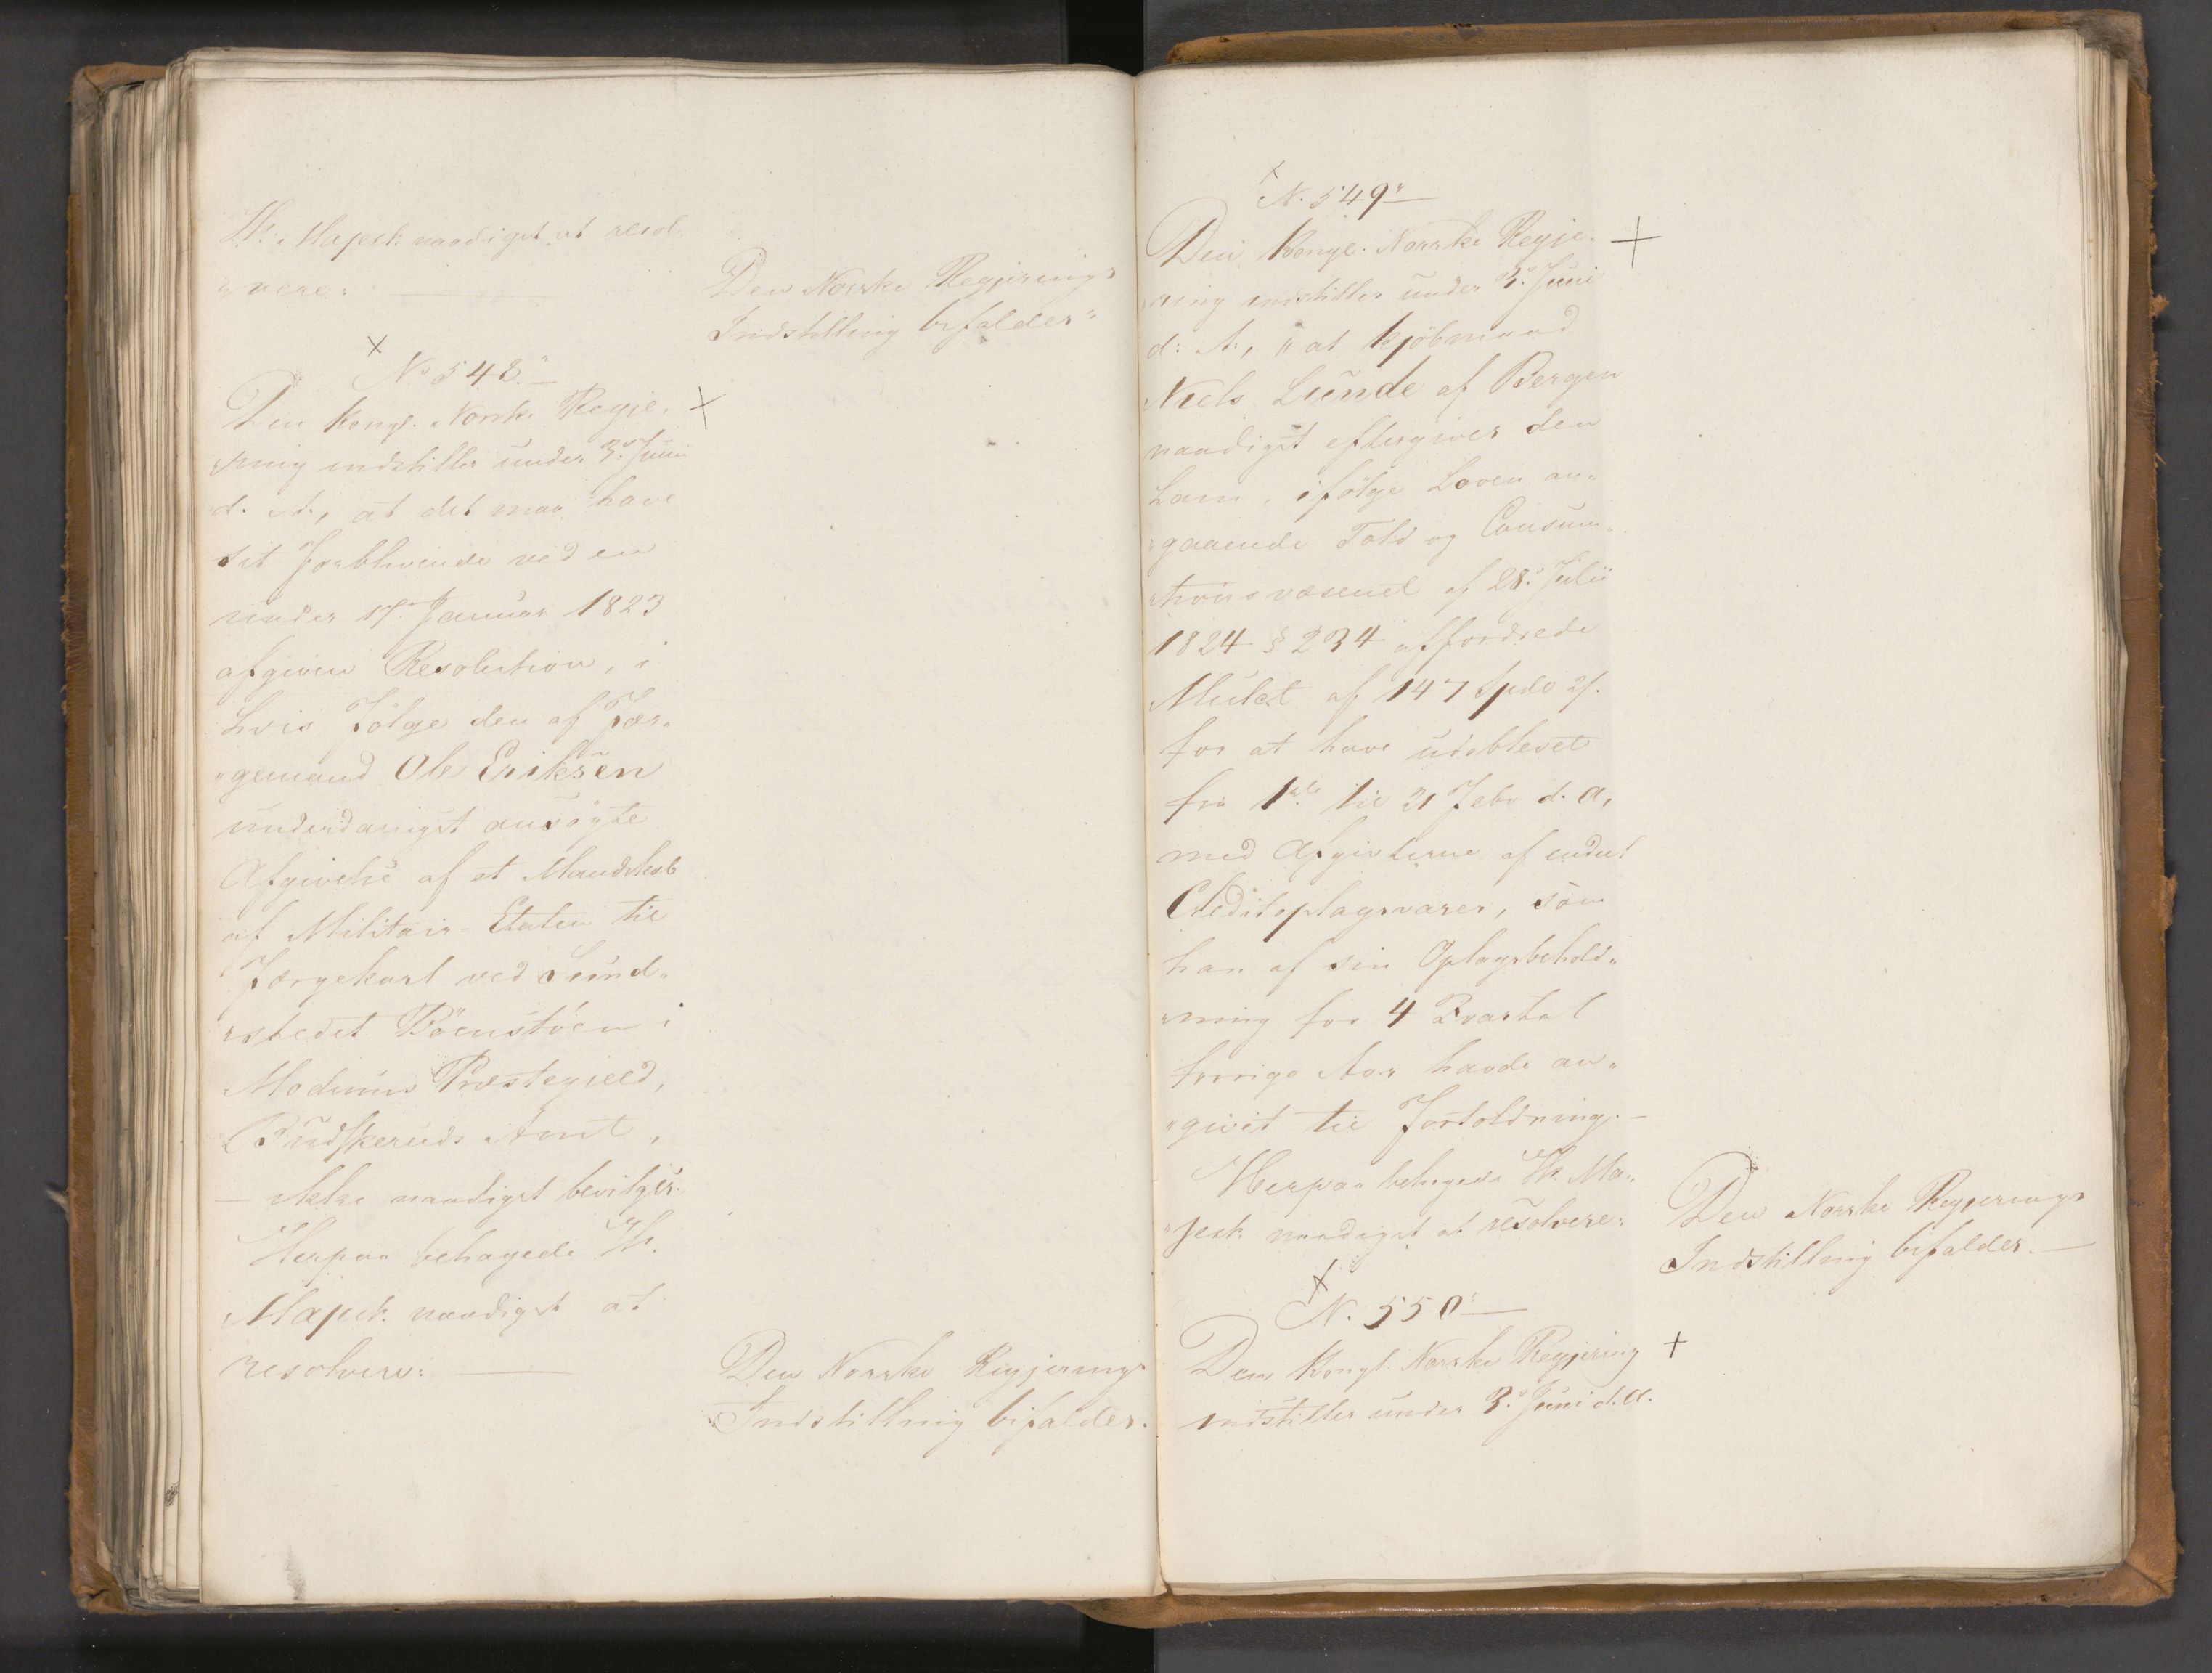 Hs: Majest: naadigst at resol-
"vere:
Den Norske Regjerings
Indstilling bifaldes"
N. 548."
Den Kongl. Norske Regje-
"ring indstiller under 3. Juni
d. A., at det maa have
sit Forblivende ved en
under 17. Januar 1823
afgiven Resolution, i
hvis Fölge den af Fær-
"gemand Ole Eriksen
underdanigst ansögte
Afgivelse af et Mandskab
af Militair-Etaten til
Færgekarl ved Sund-
"stedet i
Modums Præstegield,
Budskeruds Amt,
– ikke naadigst bevilges.
Herpaa behagede Hs.
Majest. naadigst at
resolvere:
Den Norske Regjerings
Indstilling bifaldes.
N. 549"
Den Kongl. Norske Regje-
"ring indstiller under 3. Juni
d: A:, "at Kjöbmand
Niels Lunde af Bergen
naadigst eftergives den
ham, ifölge Loven an-
"gaaende Told og Consum-
"tionsvæsenet af 28. Julii
1824 § 234 affordrede
Mulct af 147 Spd. 2/.
for at have udeblevet
fra 1ste til 21 Febr d. A,
med Afgivterne af endeel
Creditoplagsvarer, som
han af sin Oplagsbehold-
"ning for 4 Qvartal
forrige Aar havde an-
"givet til Fortoldning. –
Herpaa behagede Hs. Ma-
"jest. naadigst at resolvere:
Den Norske Regjerings
Indstilling bifaldes. –
N. 550"
Den Kongl. Norske Regjering
indstiller under 3. Juni d. A.